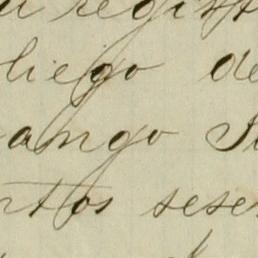 regist
pliego de
ango
ntos sese